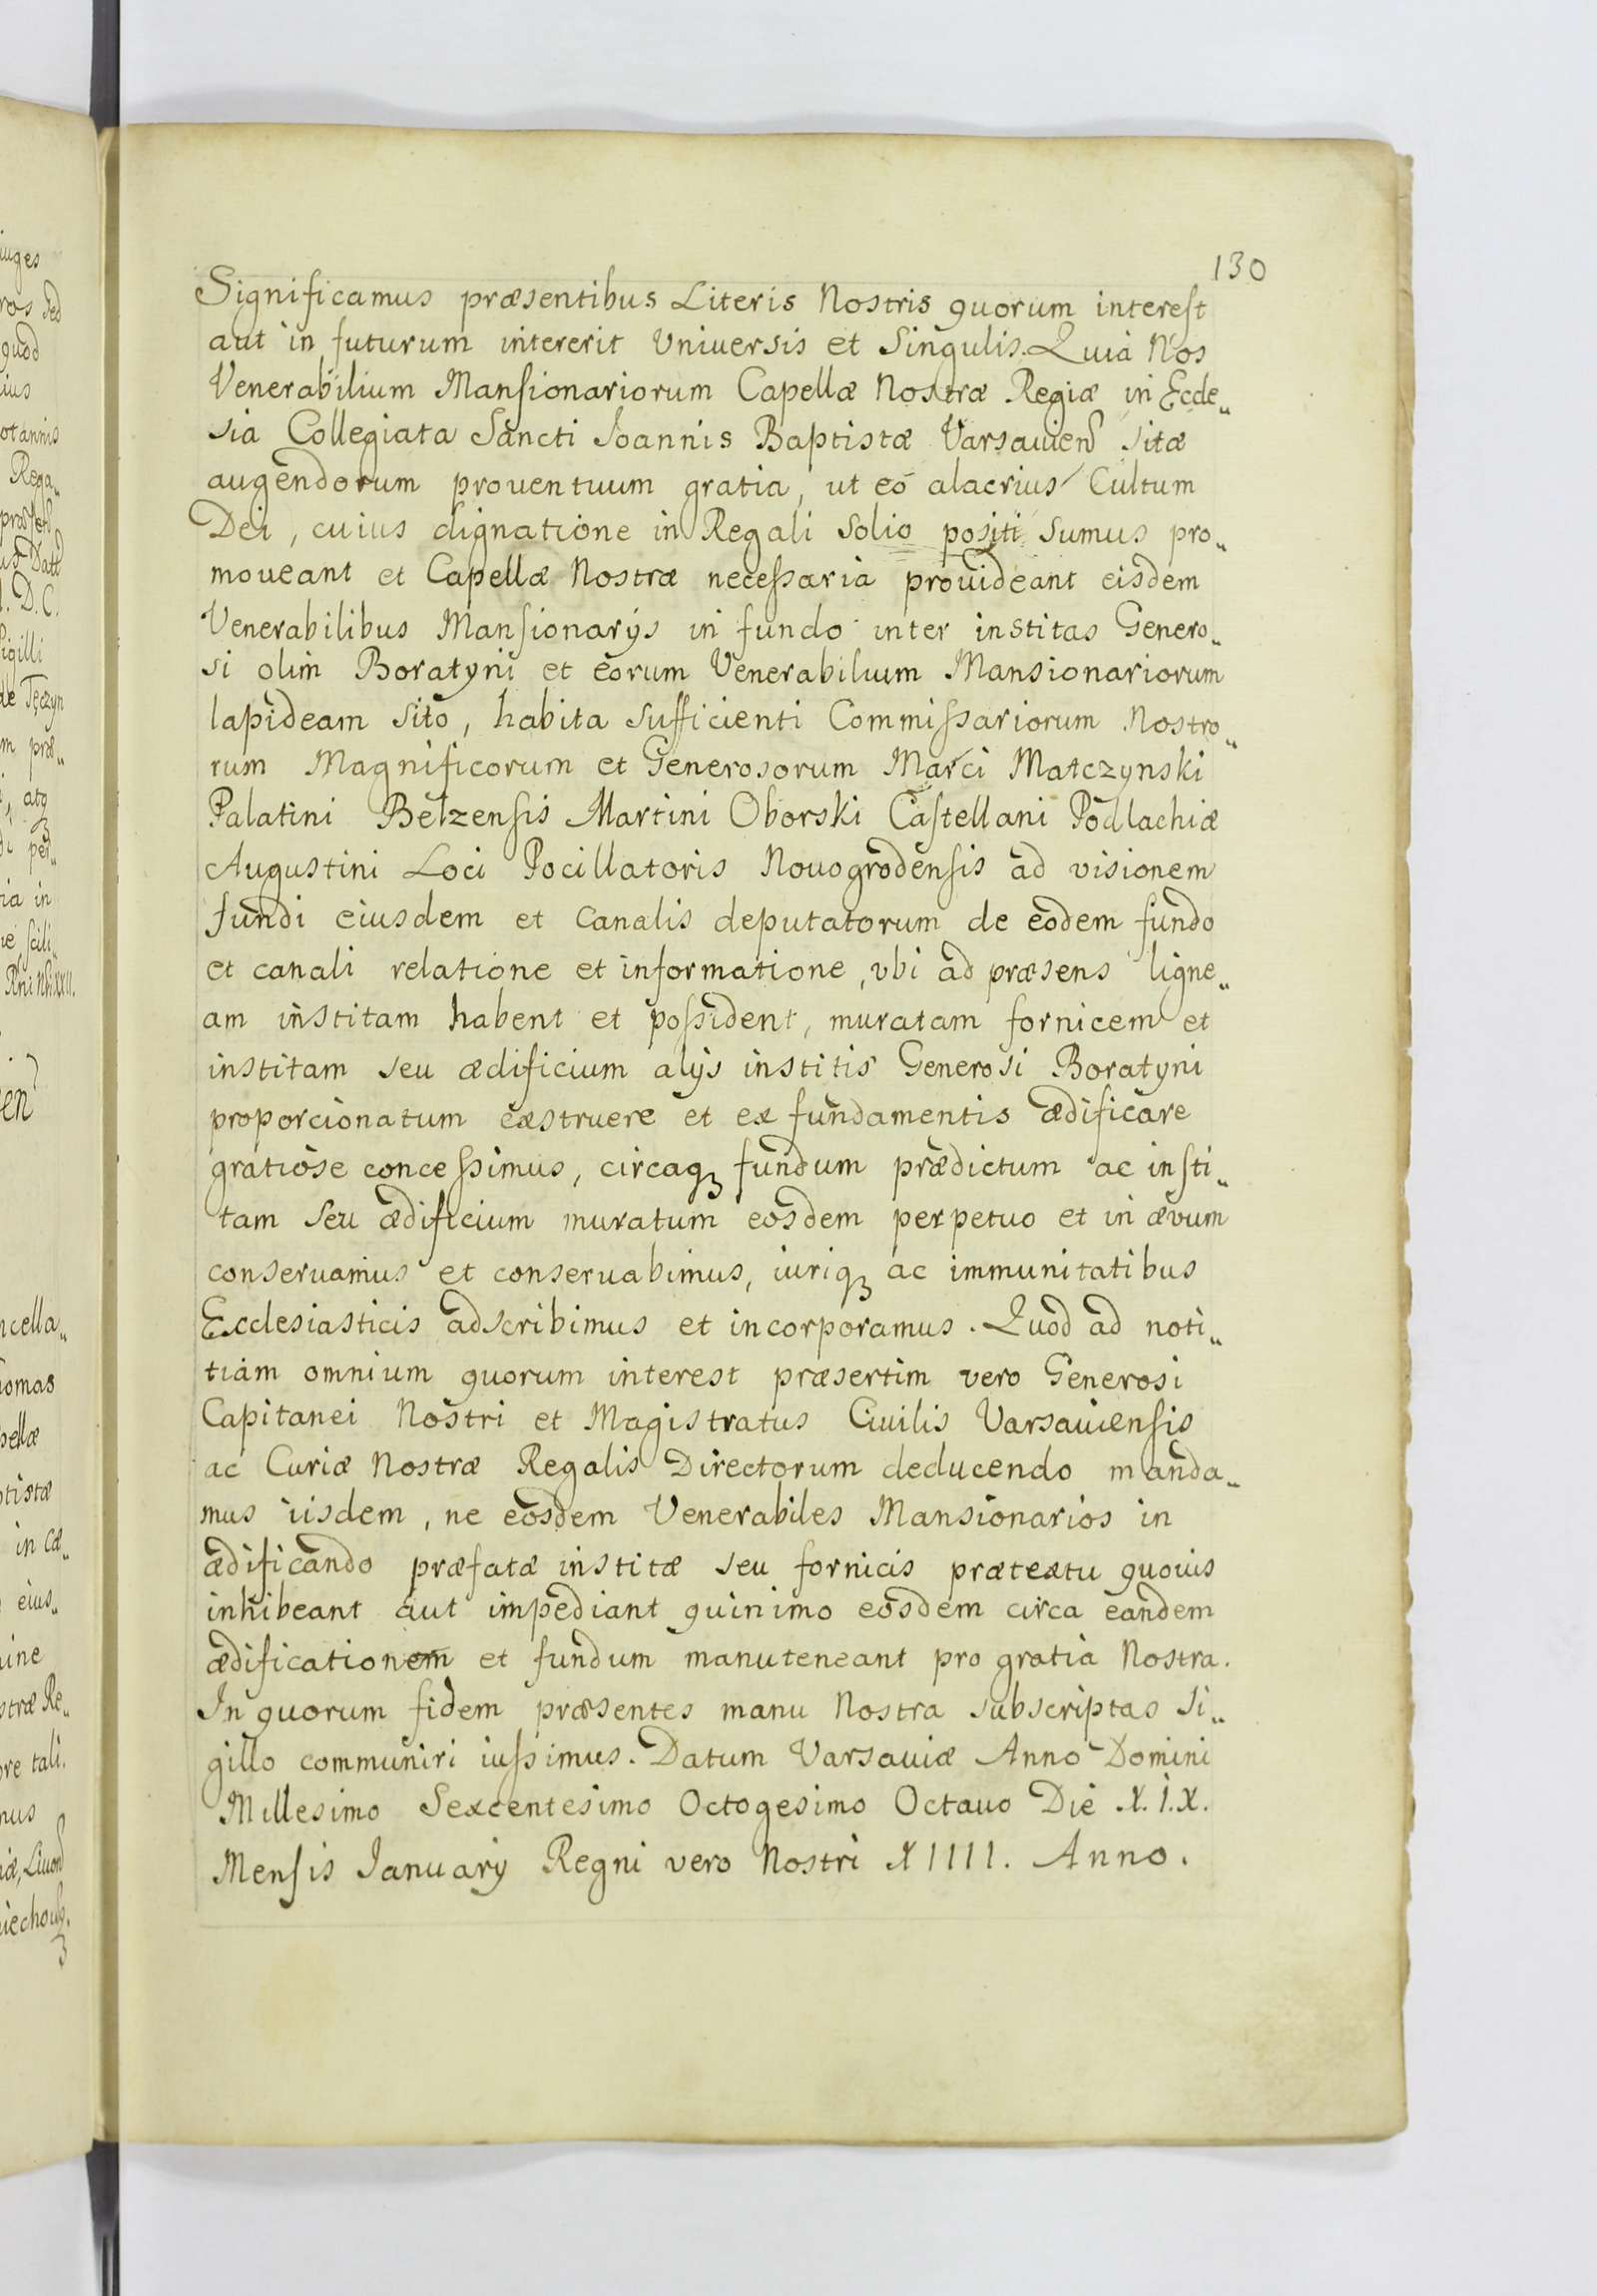 130
Significamus præsentibus Literis Nostris quorum interest
aut in futurum intererit Vniuersis et Singulis. Quia Nos
Venerabilium Mansionariorum Capellæ Nostræ Regiæ in Eccle„
sia Collegiata Sancti Ioannis Baptistæ Varsauien sitæ
augendorum prouentuum gratia, ut eó alacrius Cultum
Dei, cuius dignatione in Regali Solio positi sumus pro„
moueant et Capellæ Nostræ necessaria prouideant eisdem
Venerabilibus Mansionarÿs in fundo inter institas Genero„
si olim Boratyni et eorum Venerabilium Mansionariorum
lapideam sito, habita sufficienti Commissariorum Nostro„
rum Magnificorum et Generosorum Marci Matczynski
Palatini Belzensis Martini Oborski Castellani Podlachiæ
Augustini Loci Pocillatoris Nouogrodensis ad visionem
fundi eiusdem et Canalis deputatorum de eodem fundo
et canali relatione et informatione, vbi ad præsens ligne„
am institam habent et possident, muratam fornicem et
institam seu ædificium alÿs institis Generosi Boratyni
proporcionatum exstruere et ex fundamentis ædificare
gratiose concessimus, circaqꝫ fundum prædictum ac insti„
tam seu ædificium muratum eosdem perpetuo et in ævum
conseruamus et conseruabimus, iuriqꝫ ac immunitatibus
Ecclesiasticis adscribimus et incorporamus. Quod ad noti„
tiam omnium quorum interest præsertim vero Generosi
Capitanei Nostri et Magistratus Ciuilis Varsauiensis
ac Curiæ Nostræ Regalis Directorum deducendo manda„
mus iisdem, ne eosdem Venerabiles Mansionarios in
ædificando præfatæ institæ seu fornicis prætextu quouis
inhibeant aut impediant quinimo eosdem circa eandem
ædificationem et fundum manuteneant pro gratia Nostra.
In quorum fidem præsentes manu Nostra subscriptas Si„
gillo communiri iussimus. Datum Varsauiæ Anno Domini
Millesimo Sexcentesimo Octogesimo Octauo Die X.I.X.
Mensis Ianuarÿ Regni vero Nostri XIIII. Anno.